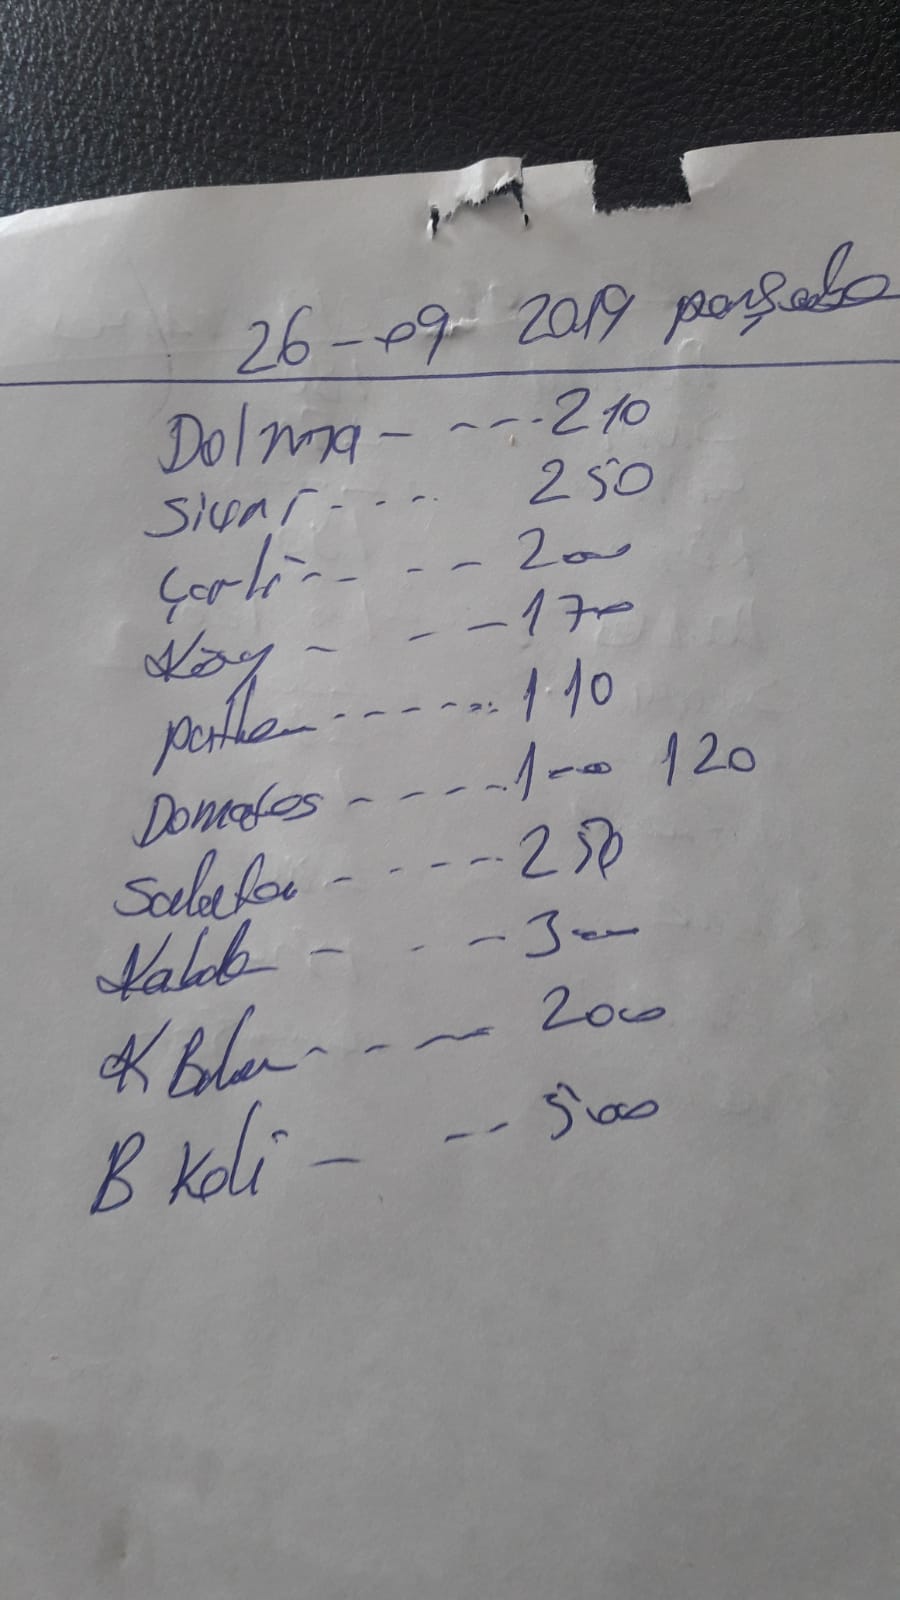 26-09 2019 perşembe
Dolma - --- 210
Sivri ---- 250
Çarli -- - -- 200
Köy - - -- 170
patlıcan ------- 110
Domates ----- 100 120
Salatalık - ---- 250
Kabak - - - 300
K Biber --- -- 200
B Koli - -- 500